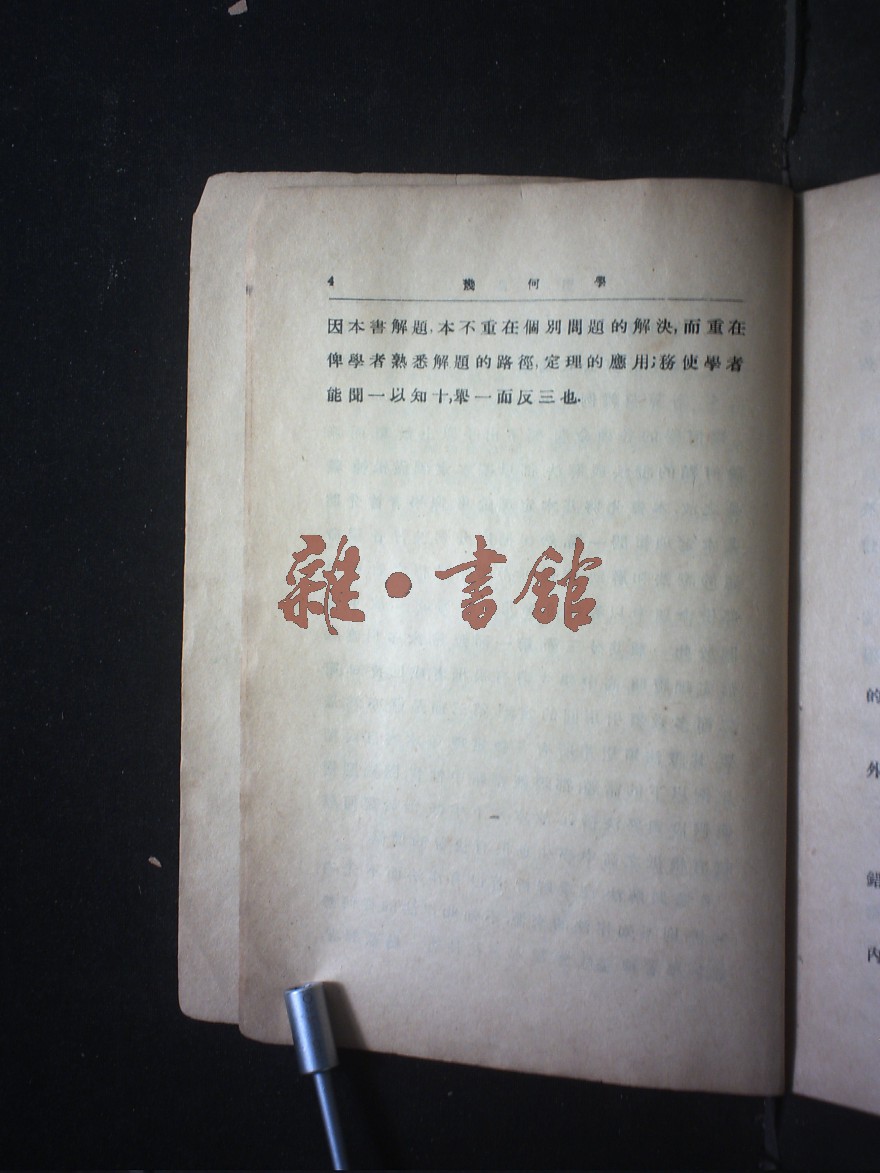 4 幾何學
因本書解題,本不重在個別問題的解決,而重在
俾學者熟悉解題的路徑,定理的應用;務使學者
能聞一以知十,舉一而反三也.
雜·書館
的
外
錯
內